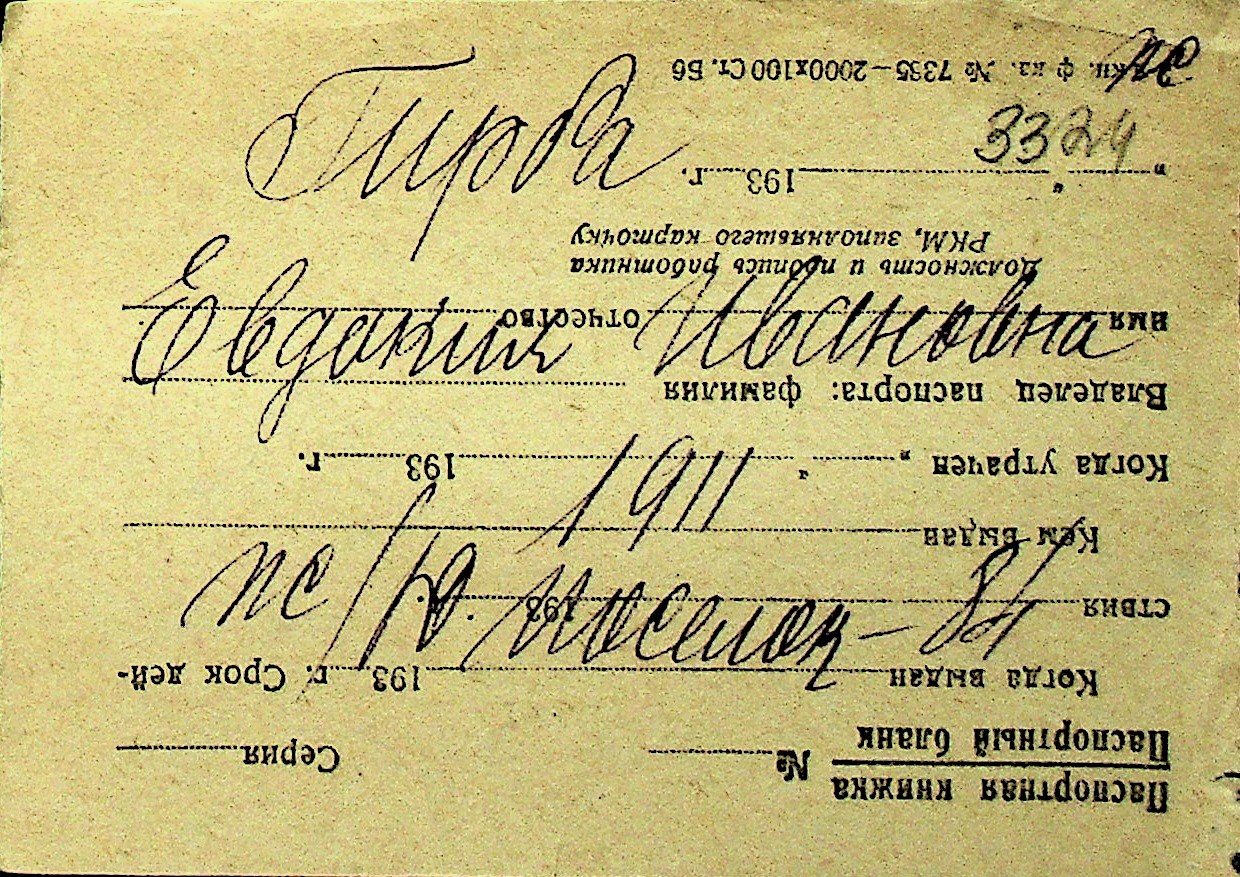 Гирва
пс
3324
Евдокия Ивановна
1911
пс/Ю. Поселок - 84
Паспортная книжка
Паспортный бланк № Серия
Когда выдан 193 г. Срок дей-
ствия 193 г.
Кем выдан
Когда утрачен „ “ 193 г.
Владелец паспорта: фамилия
имя отчество
Должность и подпись работника
РКМ, заполнявшего карточку
„ “ 193 г.
№ 7335—2000х100 Ст. Б6